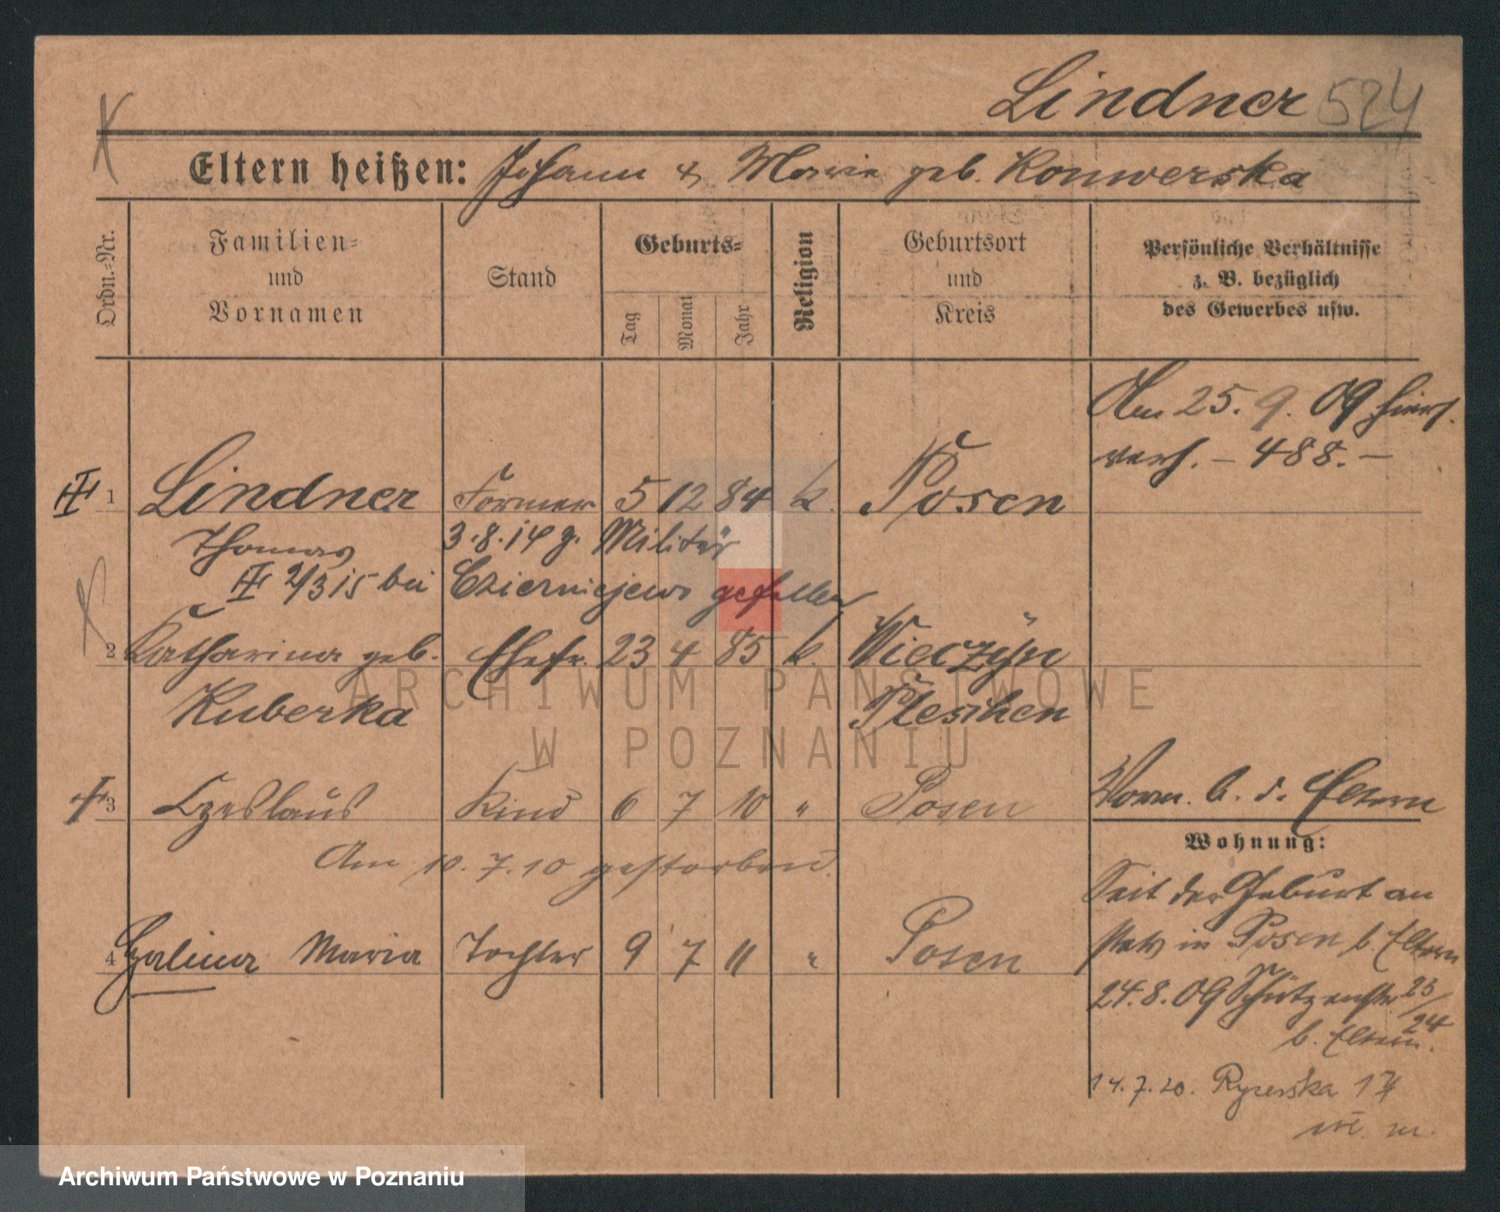 Lindner 524
Eltern heißen: Johann & Marie geb. Konwerska
Ordn.=Nr.
Familien=
und
Vornamen
Stand
Geburts=
Tag
Monat
Jahr
Religion
Geburtsort
und
Kreis
Persönliche Verhältnisse
z. B. bezüglich
des Gewerbes usw.
Am 25. 9. 09 hiers.
verh. – 488. –
1 Lindner Former 5 12 84 k. Posen
Thomas 3.8.14 z. Militär
2/3 15 bei Czierniejewo gefallen
2 Katharina geb. Ehefr. 23 4 85 k. Wieczyn
Kuberka Pleschen
3 Czeslaus Kind 6 7 10 " Posen
Am 10.7.10 gestorben.
4 Halina Maria Tochter 9 7 11 " Posen
Vorm. b. d. Eltern
Wohnung:
Seit der Geburt an
stets in Posen b. Eltern
24.8.09 Schützenstr. 23/24
b. Eltern.
14.7.20. Rycerska 17
ARCHIWUM PAŃSTWOWE
W POZNANIU
Archiwum Państwowe w Poznaniu